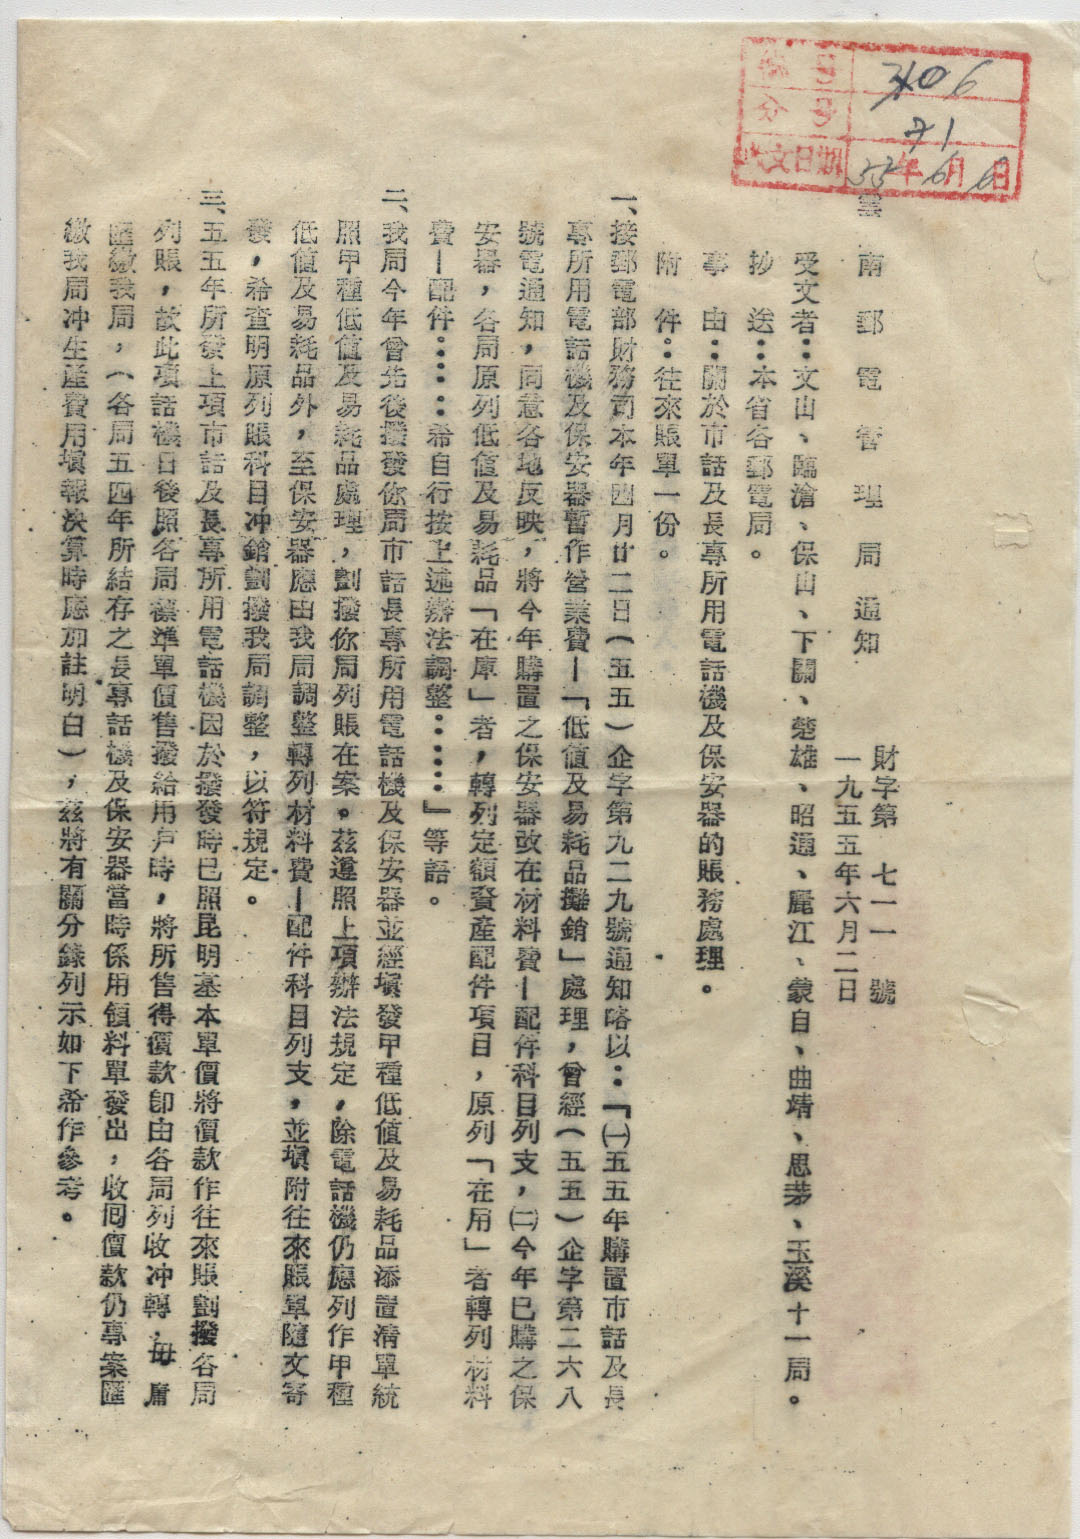 3106
71
55年6月6日
雲南郵電管理局通知
財字第七一一號
一九五五年六月二日
受文者：文山、臨滄、保山、下關、楚雄、昭通、麗江、蒙自、曲靖、思茅、玉溪十一局。
抄送：本省各郵電局。
事由：關於市話及長專所用電話機及保安器的賬務處理。
附件：往來賬單一份。
一、接郵電部財務司本年四月廿二日（五五）企字第九二九號通知略以：「㈠五五年購置市話及長
專所用電話機及保安器暫作營業費—「低值及易耗品攤銷」處理，曾經（五五）企字第二六八
號電通知，同意各地反映，將今年購置之保安器改在材料費—配件科目列支，㈡今年已購之保
安器，各局原列低值及易耗品「在庫」者，轉列定額資產配件項目，原列「在用」者轉列材料
費—配件：：：：希自行按上述辦法調整：：：：」等語。
二、我局今年曾先後撥發你局市話長專所用電話機及保安器並經填發甲種低值及易耗品添置清單統
照甲種低值及易耗品處理，劃撥你局列賬在案。茲遵照上項辦法規定，除電話機仍應列作甲種
低值及易耗品外，至保安器應由我局調整轉列材料費—配件科目列支，並填附往來賬單隨文寄
發，希查明原列賬科目冲銷劃撥我局調整，以符規定。
三、五五年所發上項市話及長專所用電話機因於撥發時已照昆明基本單價將價款作往來賬劃撥各局
列賬，故此項話機日後照各局標準單價售撥給用戶時，將所售得價款卽由各局列收冲轉，毋庸
匯繳我局，（各局五四年所結存之長專話機及保安器當時係用領料單發出，收囘價款仍專案匯
繳我局冲生產費用填報決算時應加註明白），茲將有關分錄列示如下希作參考。